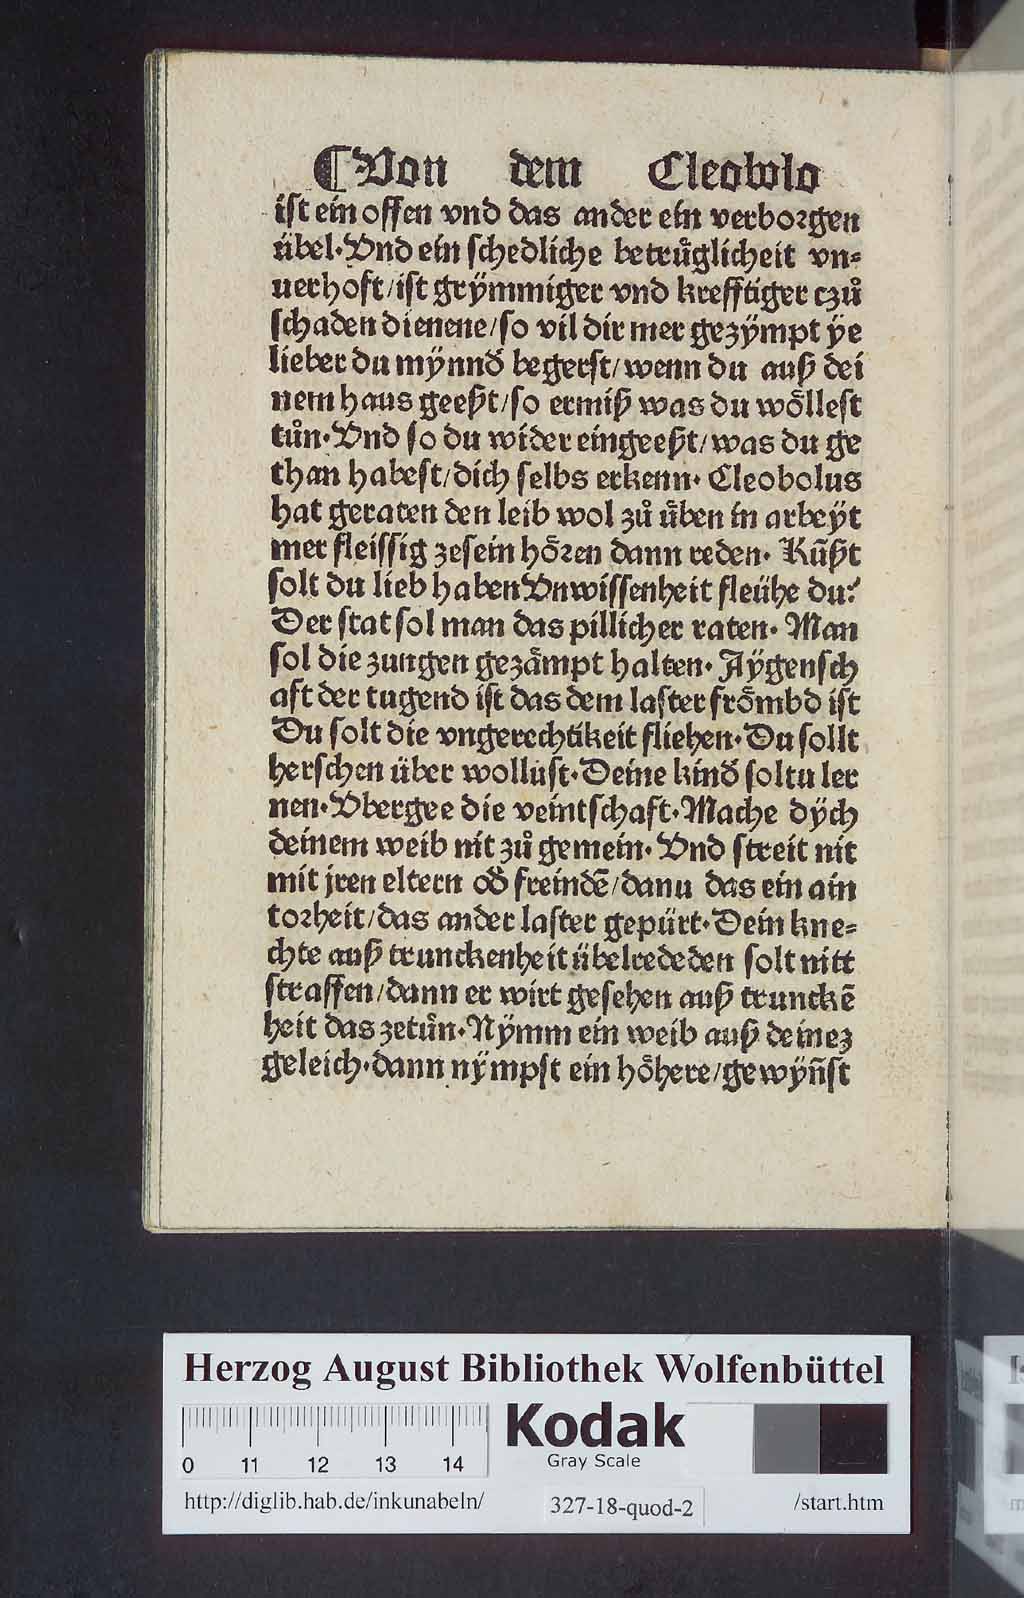 ¶Von dem Cleobolo
ist ein offen vnd das ander ein verborgen
übel. Vnd ein schedliche betruͤglicheit vn⸗
uerhoft/ist grÿmmiger vnd krefftiger czuͦ
schaden dienene/so vil dir mer gezÿmpt ÿe
lieber du mÿnnd̕ begerst/wenn du auß dei
nem haus geeßt/so ermiß was du woͤllest
tuͦn. Vnd so du wider eingeeßt/was du ge
than habest/dich selbs erkenn. Cleobolus
hat geraten den leib wol zuͦ uͤben in arbeÿt
mer fleissig zesein hoͤren dann reden. Kūßt
solt du lieb haben Vnwissenheit fleühe du.
Der stat sol man das pillicher raten. Man
sol die zungen gezaͤmpt halten. Aÿgensch
aft der tugend ist das dem laster froͤmbd ist
Du solt die vngerechtikeit fliehen. Du sollt
herschen über wollust. Deine kind̕ soltu ler
nen. Vbergee die veintschaft. Mache dÿch
deinem weib nit zuͦ gemein. Vnd streit nit
mit jren eltern od̕ freindē/danu das ein ain
torheit/das ander laster gepürt. Dein kne⸗
chte auß trunckenheit übelrededen solt nitt
straffen/dann er wirt gesehen auß trunckē
heit das zetuͦn. Nÿmm ein weib auß deinez
geleich. dann nÿmpst ein hoͤhere/gewÿn̄st
Herzog August Bibliothek Wolfenbüttel
Kodak
Gray Scale
0 11 12 13 14
http://diglib.hab.de/inkunabeln/ 327-18-quod-2 /start.htm